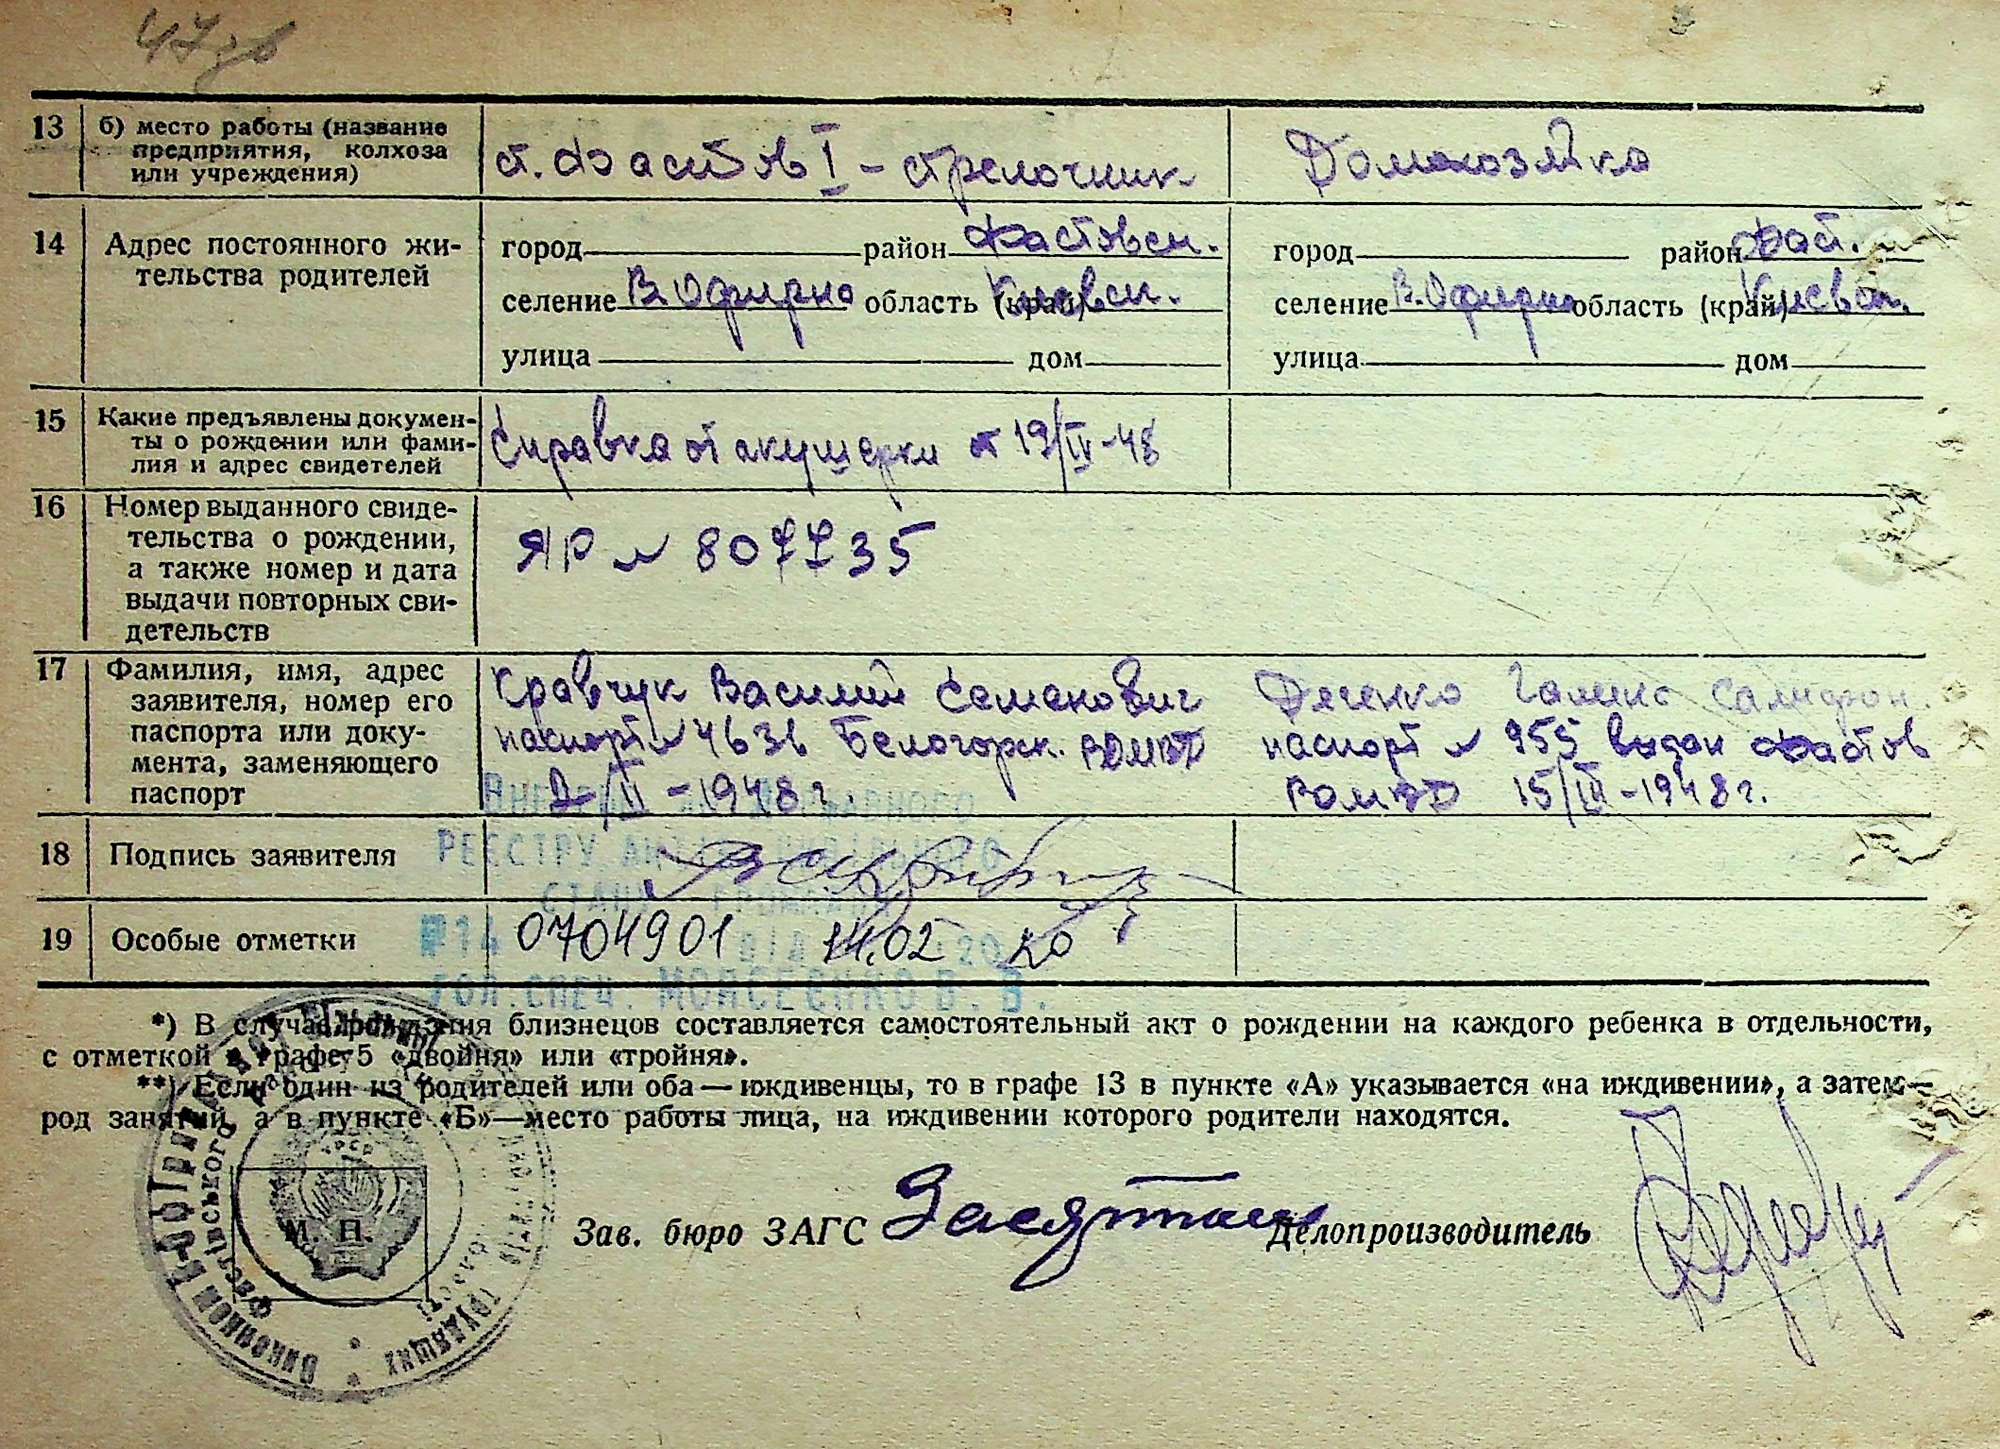 47 зв
13 б) место работы (название предприятия, колхоза или учреждения) ст. Фастов I – стрелочник Домохозяйка
14 Адрес постоянного жительства родителей
город район Фастовск. город район Фаст.
селение В. Офирно область (край) Киевск. селение В. Офирно область (край) Киевск.
улица дом улица дом
15 Какие предъявлены документы о рождении или фамилия и адрес свидетелей Справка от акушерки от 19/IV-48
16 Номер выданного свидетельства о рождении, а также номер и дата выдачи повторных свидетельств ЯР № 807735
17 Фамилия, имя, адрес заявителя, номер его паспорта или документа, заменяющего паспорт
Кравчук Василий Семенович Галина
паспорт № 4636 Белогорск. РОМВД паспорт № 955 выдан Фастов
2/II – 1948 г РОМВД 15/III-1948 г.
18 Подпись заявителя
19 Особые отметки 0704901 14.02
РЕЄСТРУ АКТІВ ЦИВІЛЬНОГО
СТАНУ ГРОМАДЯН
ГОЛ. СПЕЦ. МОЙСЕЄНКО В. В.
*) В случае рождения близнецов составляется самостоятельный акт о рождении на каждого ребенка в отдельности,
с отметкой в графе 5 «двойня» или «тройня».
**) Если один из родителей или оба—иждивенцы, то в графе 13 в пункте «А» указывается «на иждивении», а затем—
род занятий, а в пункте «Б»—место работы лица, на иждивении которого родители находятся.
М. П.
Зав. бюро ЗАГС Делопроизводитель